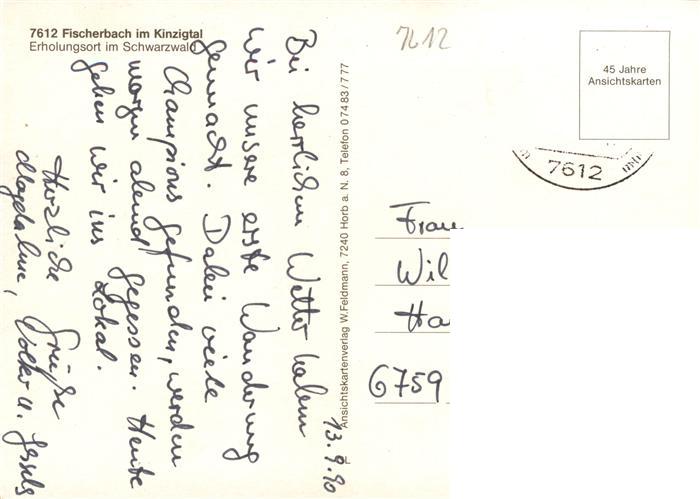 7612 Fischerbach im Kinzigtal
Erholungsort im Schwarzwald
7612
45 Jahre
Ansichtskarten
7612
13.9.90
Bei herrlichem Wetter haben
wir unsere erste Wanderung
gemacht. Dabei viele
Champions gefunden, werden
morgen abend gegessen. Heute
gehen wir ins Lokal.
Herzliche Grüße
Magdalene, Volker u.
Ansichtskartenverlag W.Feldmann, 7240 Horb a. N. 8, Telefon 07483/777
Frau
Wil
Ha
6759